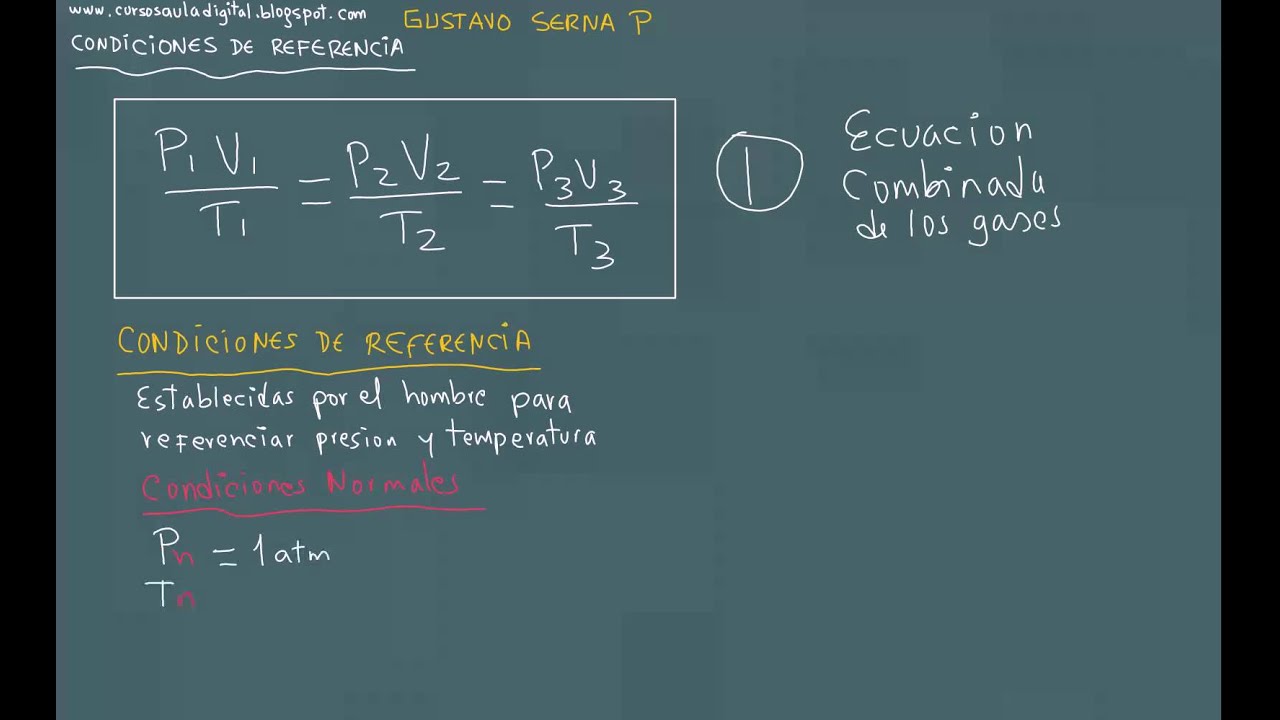 www.cursosauladigital.blogspot.com
GUSTAVO SERNA P
CONDICIONES DE REFERENCIA
P1 V1 / T1 = P2 V2 / T2 = P3 V3 / T3
1
Ecuacion
Combinada
de los gases
CONDICIONES DE REFERENCIA
Establecidas por el hombre para
referenciar presion y temperatura
Condiciones Normales
Pn = 1 atm
Tn